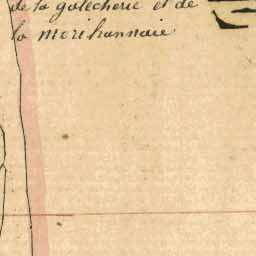 de la galecherie et de
la morihannaie